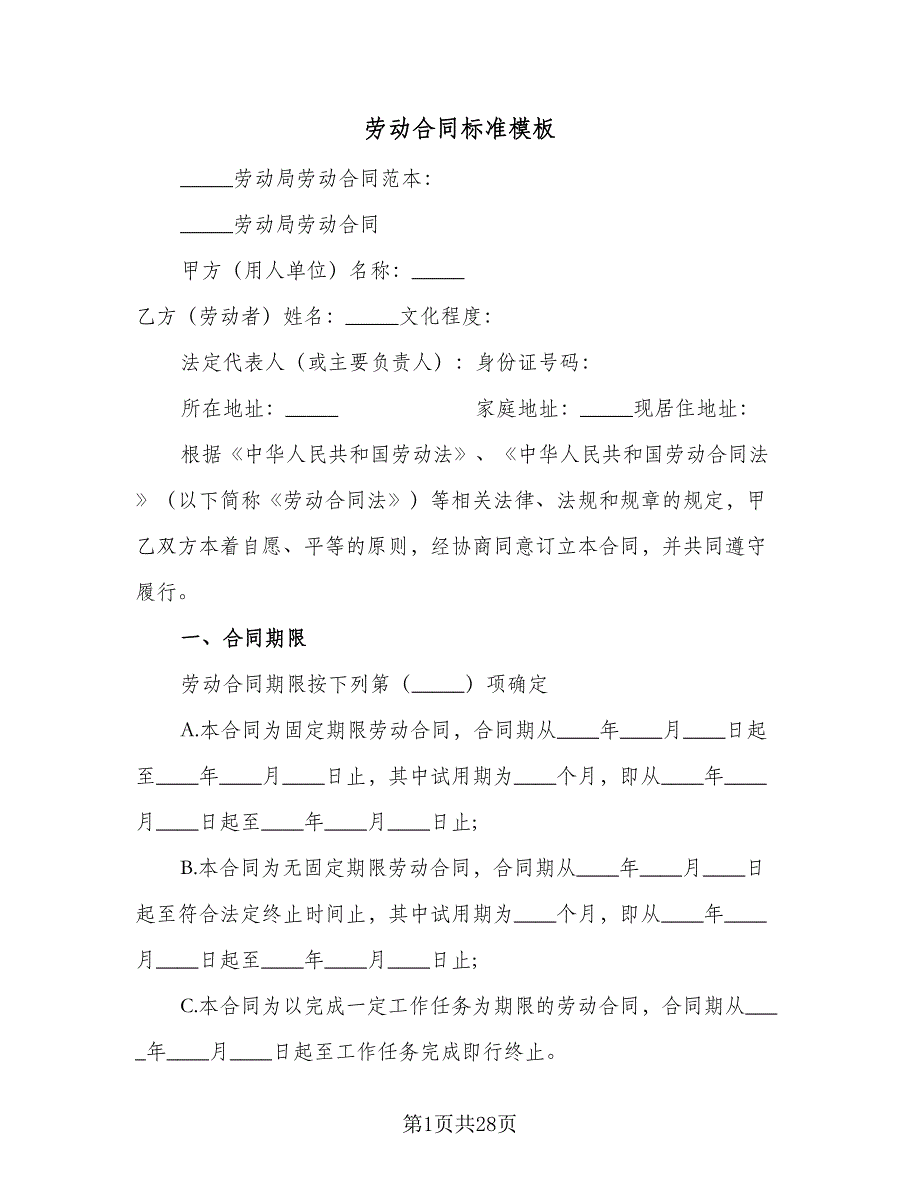 劳动合同标准模板
_____劳动局劳动合同范本：
_____劳动局劳动合同
甲方（用人单位）名称：_____
乙方（劳动者）姓名：_____文化程度：
法定代表人（或主要负责人）：身份证号码：
所在地址：_____ 家庭地址：_____现居住地址：
根据《中华人民共和国劳动法》、《中华人民共和国劳动合同法
》（以下简称《劳动合同法》）等相关法律、法规和规章的规定，甲
乙双方本着自愿、平等的原则，经协商同意订立本合同，并共同遵守
履行。
一、合同期限
劳动合同期限按下列第（_____）项确定
A.本合同为固定期限劳动合同，合同期从____年____月____日起
至____年____月____日止，其中试用期为____个月，即从____年____
月____日起至____年____月____日止;
B.本合同为无固定期限劳动合同，合同期从____年____月____日
起至符合法定终止时间止，其中试用期为____个月，即从____年____
月____日起至____年____月____日止;
C.本合同为以完成一定工作任务为期限的劳动合同，合同期从___
_年____月____日起至工作任务完成即行终止。
第1页共28页